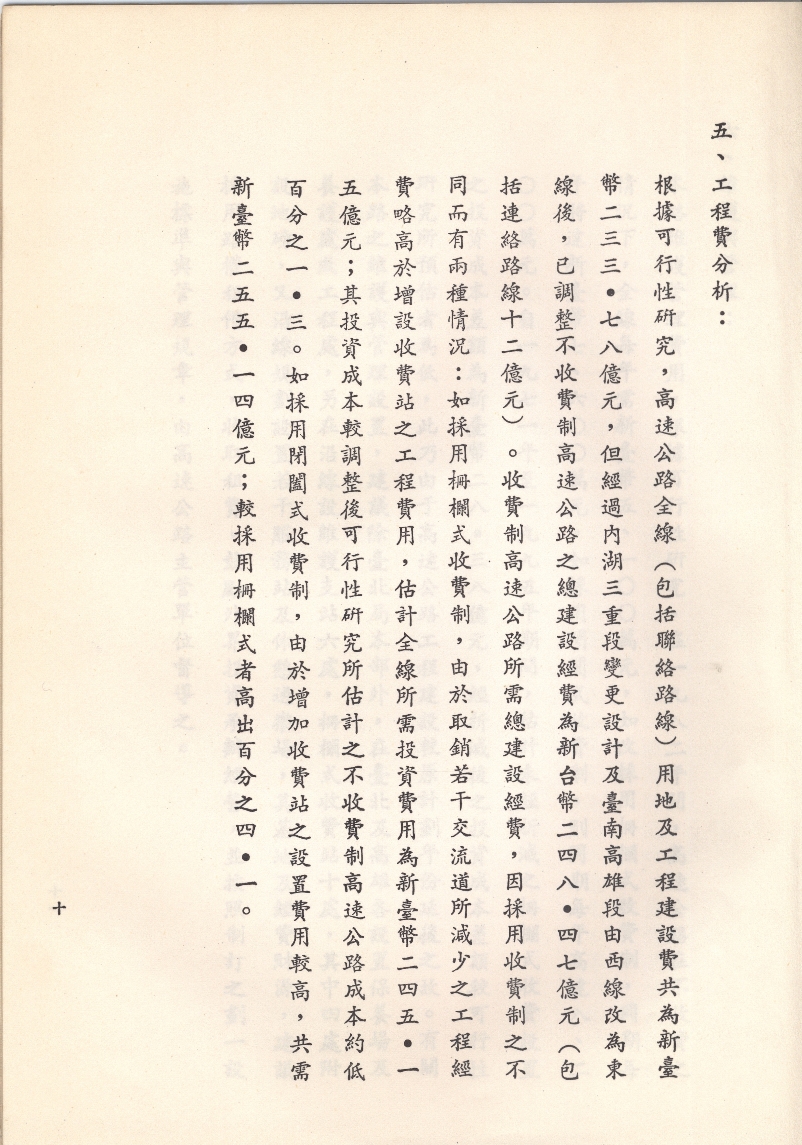 五、工程費分析：
根據可行性研究，高速公路全線（包括聯絡路線）用地及工程建設費共為新臺
幣二三三•七八億元，但經過內湖三重段變更設計及臺南高雄段由西線改為東
線後，已調整不收費制高速公路之總建設經費為新台幣二四八•四七億元（包
括連絡路線十二億元）。收費制高速公路所需總建設經費，因採用收費制之不
同而有兩種情況：如採用柵欄式收費制，由於取銷若干交流道所減少之工程經
費略高於增設收費站之工程費用，估計全線所需投資費用為新臺幣二四五•一
五億元；其投資成本較調整後可行性研究所估計之不收費制高速公路成本約低
百分之一•三。如採用閉闔式收費制，由於增加收費站之設置費用較高，共需
新臺幣二五五•一四億元；較採用柵欄式者高出百分之四•一。
十